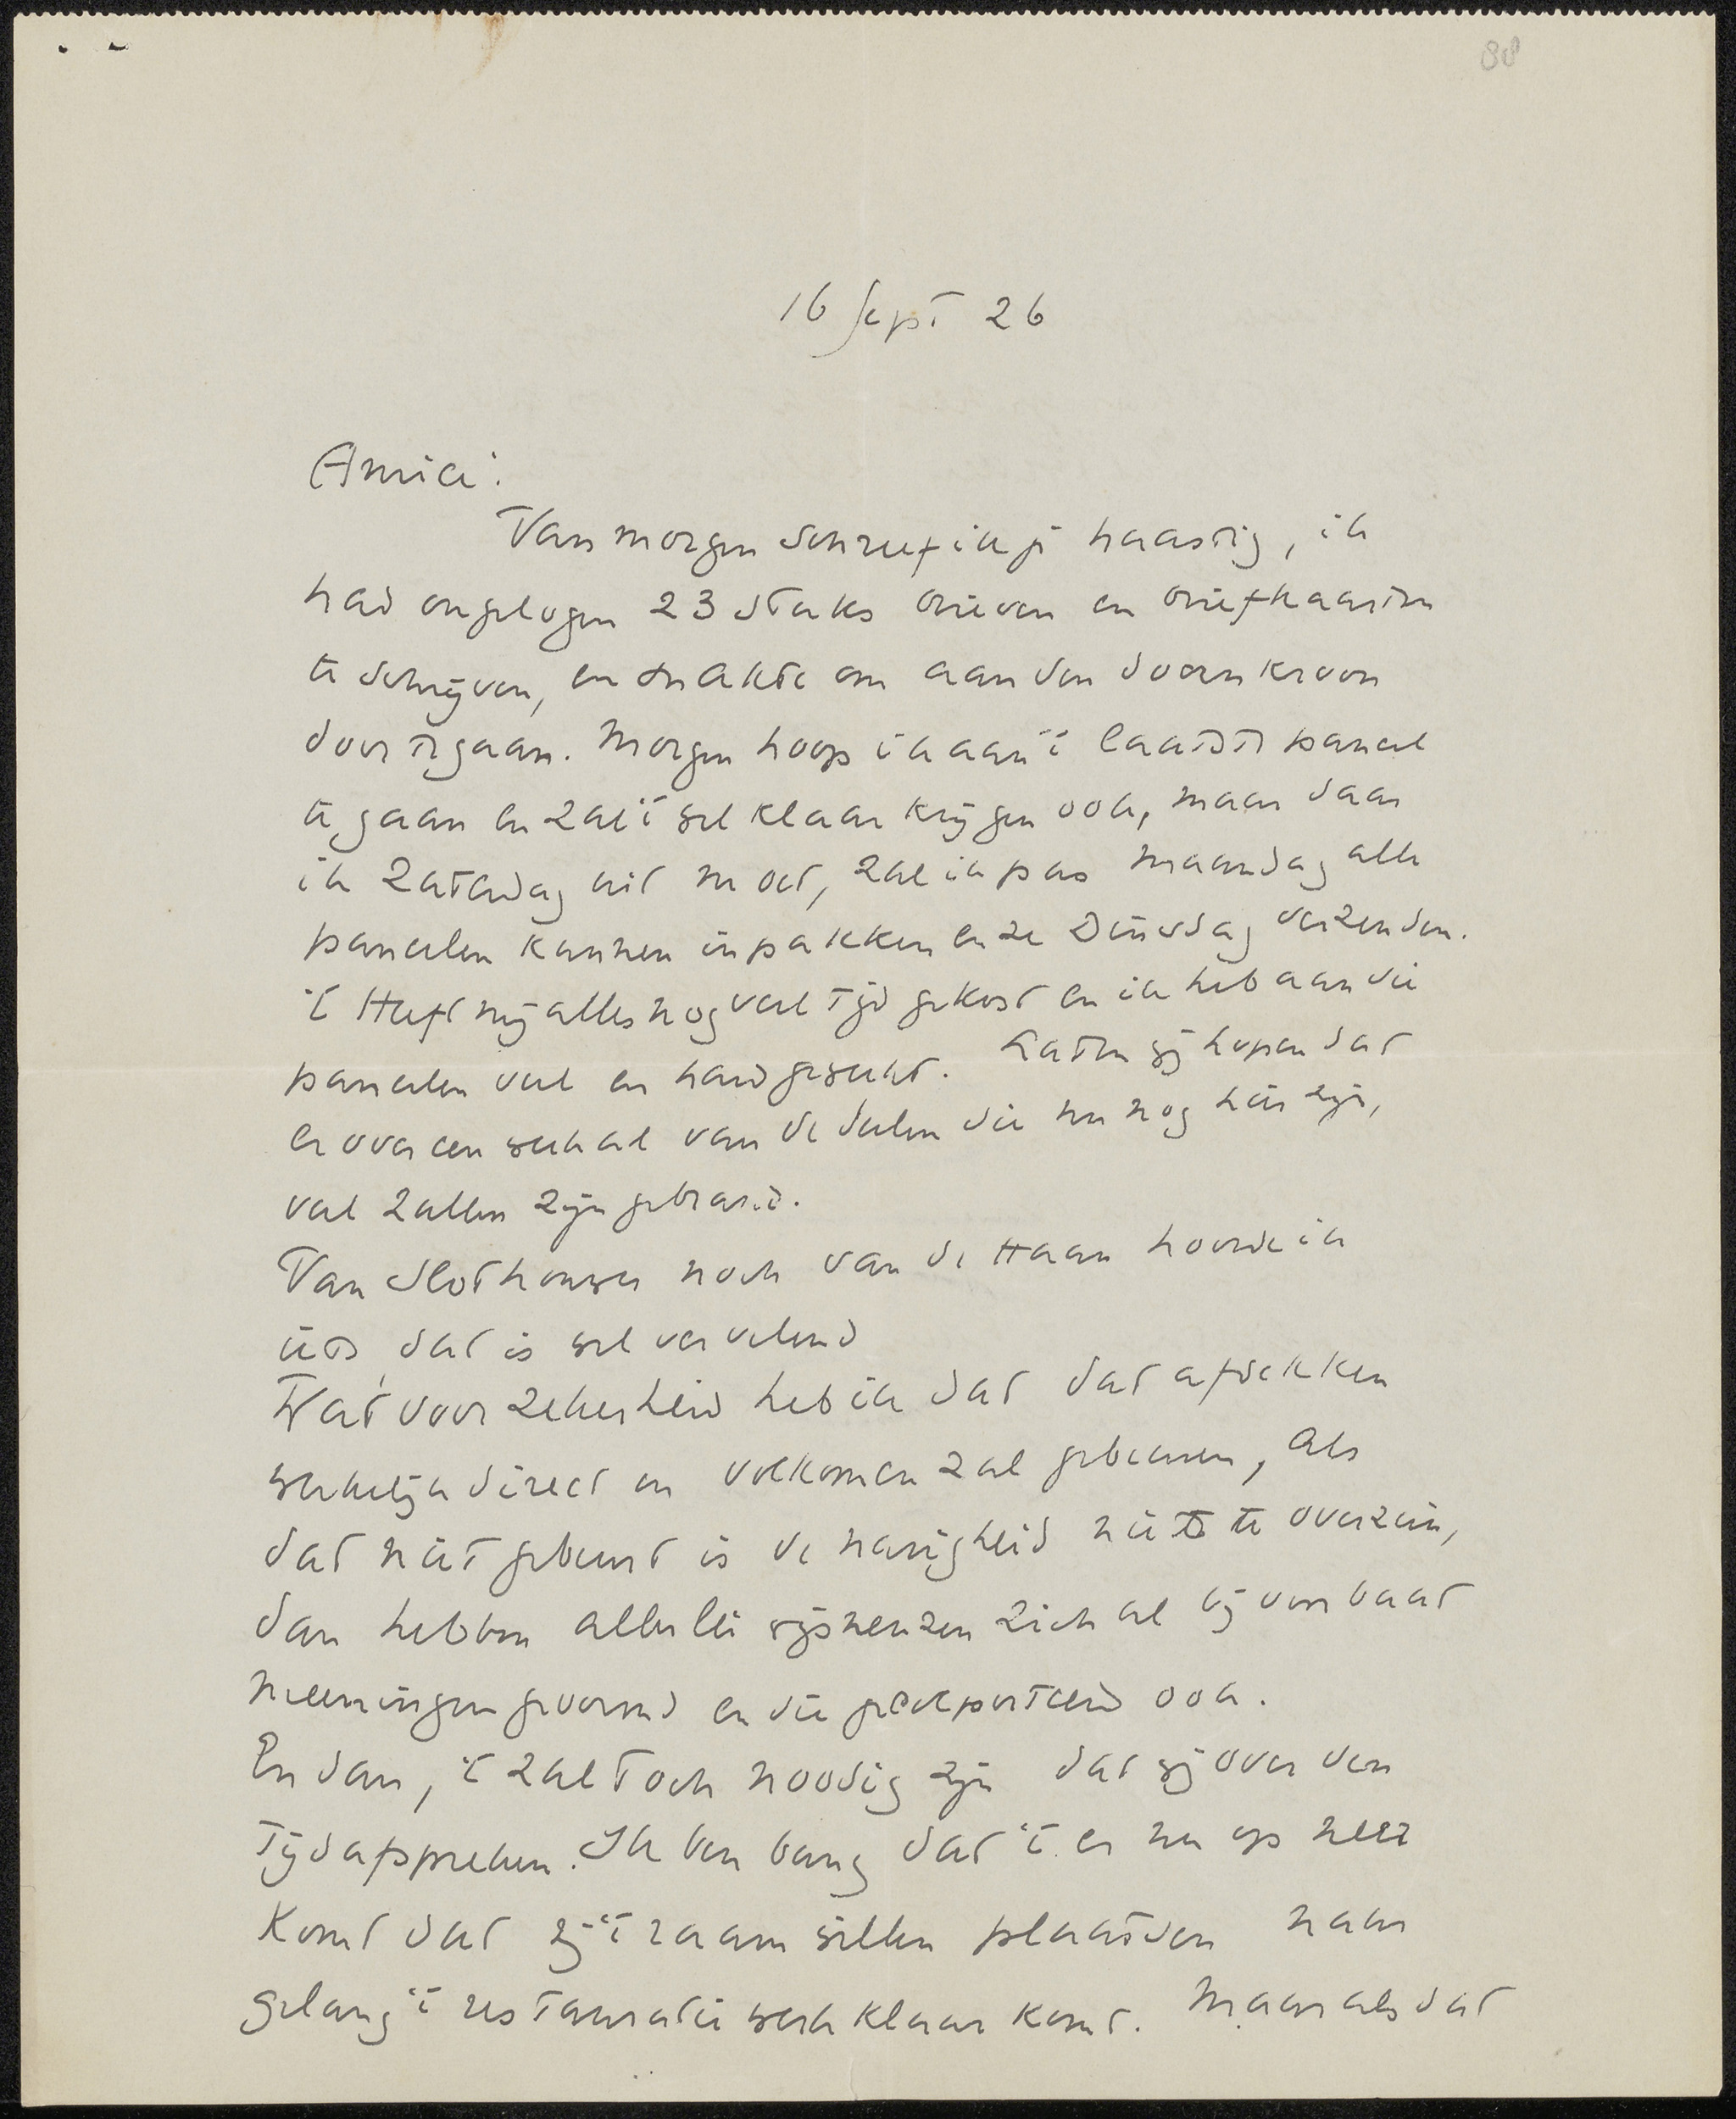 88
16 Sept 26
Amice:
Van morgen schreef ik je haastig, ik
had ongelogen 23 stuks brieven en briefkaarten
te schrijven, en snakte om aan den doornkroon
door te gaan. Morgen hoop ik aan 't laatste paneel
te gaan en zal 't wel klaar krijgen ook, maar daar
ik Zaterdag uit moet, zal ik pas maandag alle
paneelen kunnen inpakken en ze Dinsdag verzenden.
't Heeft mij alles nog veel tijd gekost en ik heb aan die
paneelen veel en hard gewerkt. Laten wij hopen dat
er over een week al van de deelen die nu nog hier zijn,
veel zullen zijn gebrand.
Van Slothouwer noch van de Haan hoorde ik
iets, dat is wel vervelend
Wat voor zekerheid heb ik dat dat afdekken
werkelijk direct en volkomen zal gebeuren, als
dat niet gebeurt is de narigheid niet te overzien,
dan hebben allerlei wijsneuzen zich al bij voorbaat
meeningen gevormd en die gecolporteerd ook.
En dan, 't zal toch noodig zijn dat wij over den
tijd afspreken. Ik ben bang dat 't er nu op neer
komt dat zij 't raam willen plaatsen naar
gelang 't restauratie werk klaar komt. Maar als dat